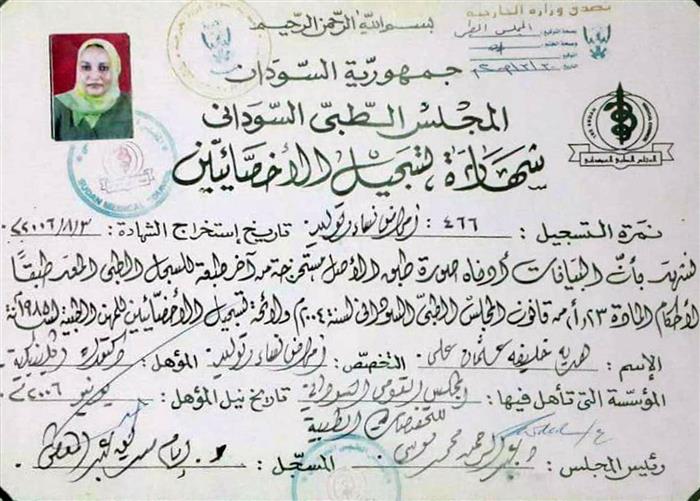 بسم الله الرحمن الرحيم
تصديق وزارة الخارجية
المجلس الطبي
جمهورية السودان
المجلس الطبي السوداني
شهادة لتسجيل الأخصائيين
SUDAN MEDICAL COUNCIL
المجلس الطبي السوداني
نمرة التسجيل : ٤٦٦ : أمراض نساء وتوليد تاريخ إستخراج الشهادة : ٢٠٠٦/٨/٣
نشهد بأن البيانات أدناه صورة طبق الأصل مستخرجة من آخر طبعة للسجل الطبي المعد طبقاً
لأحكام المادة ٢٣/أ من قانون المجلس الطبي السوداني لسنة ٢٠٠٤م ولائحة تسجيل الأخصائيين للمهن الطبية لسنة ١٩٨٥
الإسم : هدية خليفة عثمان علي التخصص : أمراض نساء وتوليد المؤهل : دكتوراة إكلينيكية
المؤسسة التي تأهل فيها : المجلس القومي السوداني تاريخ نيل المؤهل : يونيو ٢٠٠٦
للتخصصات الطبية
رئيس المجلس : د. عبد الرحمن محمد موسى المسجل :